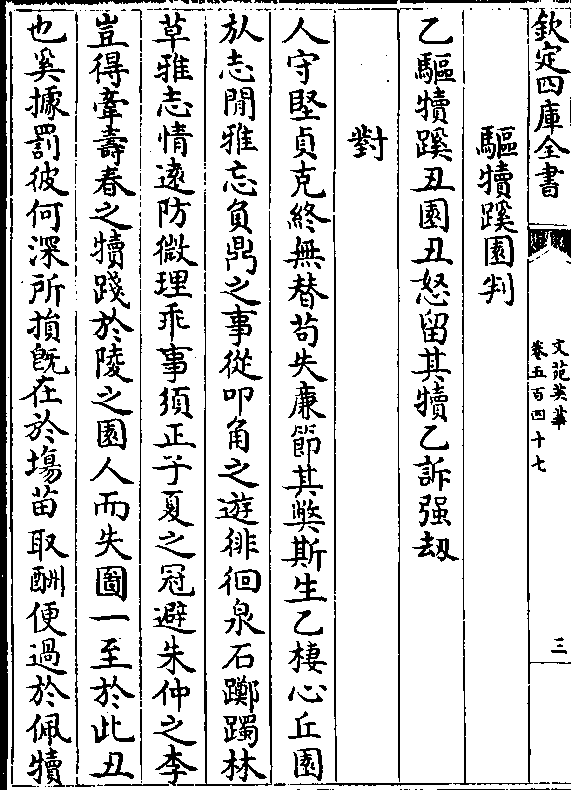 欽定四庫全書
文苑英華
卷五百四十七
三
驅犢蹊園判
乙驅犢蹊丑園丑怒留其犢乙訴强刼
對
人守堅貞克終無替苟失亷節其弊斯生乙棲心丘園
㪚志閒雅忘負鼎之事從叩角之遊徘徊泉石躑躅林
草雅志情遠防微理乖事須正子夏之冠避朱仲之李
豈得牽壽春之犢踐於陵之園人而失圖一至於此丑
也奚據罰彼何深所損旣在於塲苗取酬便過於佩犢